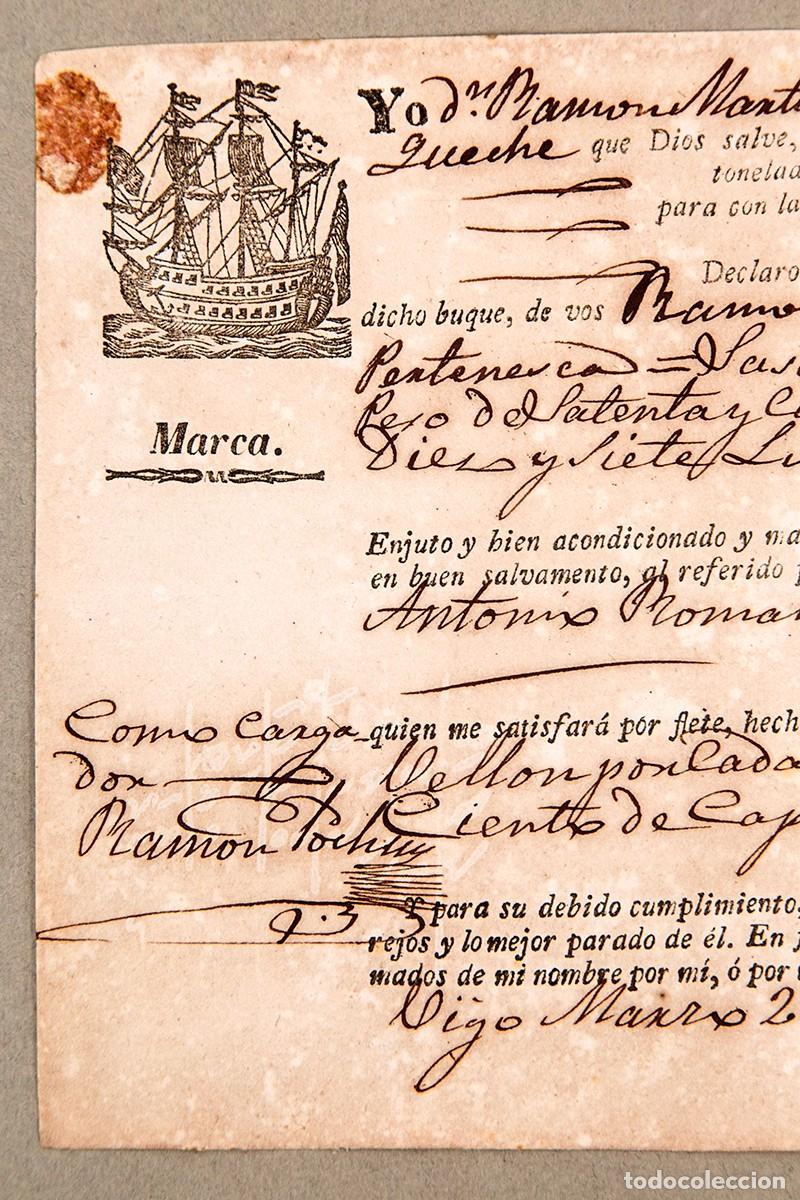 Yo dn Ramon Mart
Queche que Dios salve,
tonelad
para con la
Declaro
dicho buque, de vos Ramo
Pertenesca = Sas
Peso de Satenta y Ca
Diez y Siete Li
Marca.
Enjuto y bien acondicionado y ma
en buen salvamento, al referido p
Antonio Roma
Como Carga quien me satisfará por flete, hech
dor Vellon por Cada
Ramon Ciento de Cap
Y para su debido cumplimiento,
rejos y lo mejor parado de él. En
mados de mi nombre por mí, ó por
Vigo Marzo 2
todocoleccion